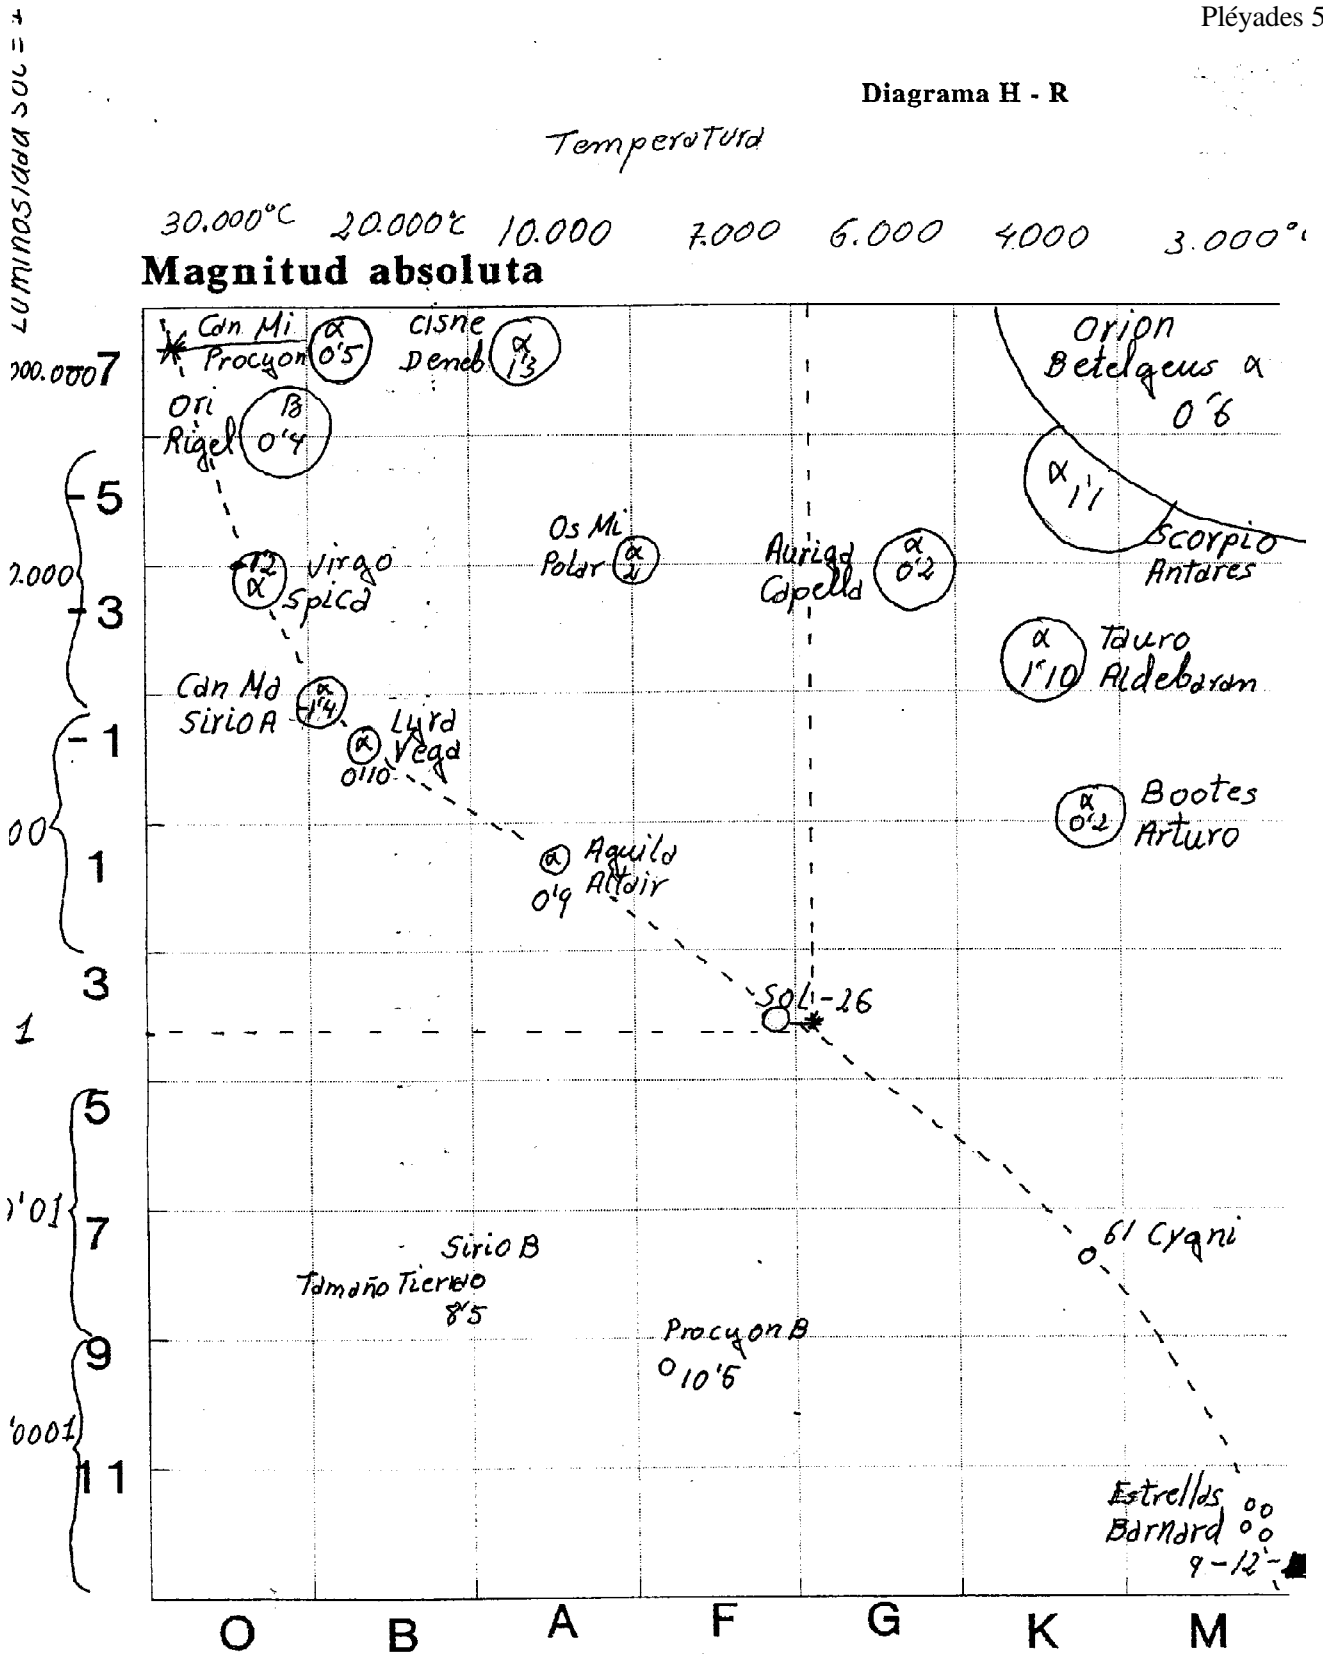 Pléyades 5
Diagrama H - R
Temperatura
30.000°C 20.000°C 10.000 7.000 6.000 4000 3.000°
Magnitud absoluta
Luminosidad SOL =
000.000
7
Can Mi
Procyon
α
0'5
Cisne
Deneb
α
1'3
Orion
Betelgeus α
0'6
Ori
Rigel
B
0'4
α 1'1
Scorpio
Antares
- 5
Os Mi
Polar
α
2
Auriga
Capella
α
0'2
1'2
α
Virgo
Spica
0.000
- 3
α
1'10
Tauro
Aldebaran
Can Ma
Sirio A
α
-1'4
- 1
α
0'10
Lyra
Vega
α
0'2
Bootes
Arturo
00
1
α
0'9
Aquila
Altair
3
SOL -26
1
5
0'01
7
61 Cygni
Sirio B
Tamaño Tierra
8'5
9
Procyon B
10'6
'0001
11
Estrellas
Barnard
9-12-
O B A F G K M